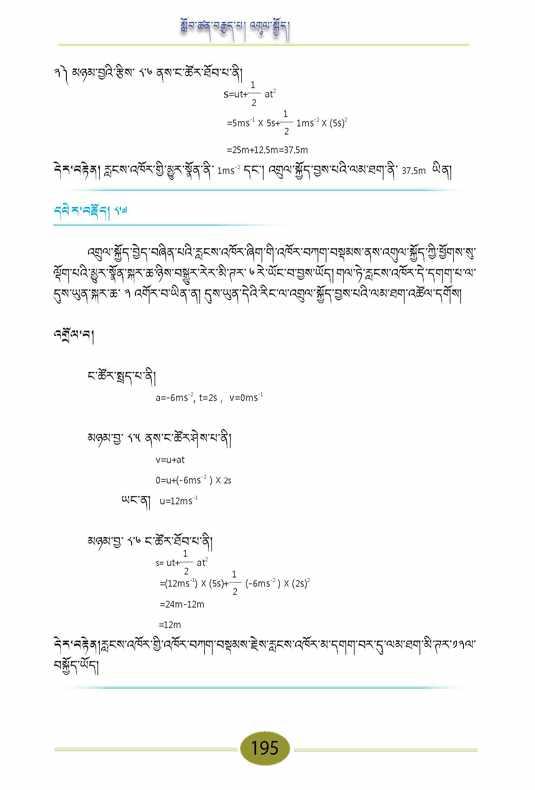 སློབ་ཚན་བརྒྱད་པ། འགུལ་སྐྱོད།
༢) མཉམ་བྱའི་རྩིས་ ༨.༦ ནས་ང་ཚོར་ཐོབ་པ་ནི།
s=ut+1/2 at²
=5ms⁻¹ X 5s+1/2 1ms⁻² X (5s)²
=25m+12.5m=37.5m
དེར་བརྟེན། རླངས་འཁོར་གྱི་མྱུར་སྣོན་ནི་ 1ms⁻² དང་། འགུལ་སྐྱོད་བྱས་པའི་ལམ་ཐག་ནི་ 37.5m ཡིན།
དཔེར་བརྗོད། ༨.༧
འགུལ་སྐྱོད་བྱེད་བཞིན་པའི་རླངས་འཁོར་ཞིག་གི་འཁོར་བཀག་བསྡམས་ནས་འགུལ་སྐྱོད་ཀྱི་ཕྱོགས་སུ་
ལྡོག་པའི་མྱུར་སྣོན་སྐར་ཆ་ཉིས་བསྒྱུར་རེར་མི་ཊར་ ༦ རེ་ཡོང་བ་བྱས་ཡོད། གལ་ཏེ་རླངས་འཁོར་དེ་དགག་པ་ལ་
དུས་ཡུན་སྐར་ཆ་ ༢ འགོར་བ་ཡིན་ན། དུས་ཡུན་དེའི་རིང་ལ་འགུལ་སྐྱོད་བྱས་པའི་ལམ་ཐག་འཚོལ་དགོས།
འགྲོལ་བ།
ང་ཚོར་སྤྲད་པ་ནི།
a=-6ms⁻², t=2s , v=0ms⁻¹
མཉམ་བྱ་ ༨.༥ ནས་ང་ཚོར་ཤེས་པ་ནི།
v=u+at
0=u+(-6ms⁻² ) X 2s
ཡང་ན། u=12ms⁻¹
མཉམ་བྱ་ ༨.༦ ང་ཚོར་ཐོབ་པ་ནི།
s= ut+1/2 at²
=(12ms⁻¹) X (5s)+1/2 (-6ms⁻² ) X (2s)²
=24m-12m
=12m
དེར་བརྟེན།རླངས་འཁོར་གྱི་འཁོར་བཀག་བསྡམས་རྗེས་རླངས་འཁོར་མ་དགག་བར་དུ་ལམ་ཐག་མི་ཊར་༡༢ལ་
བསྐྱོད་ཡོད།
195